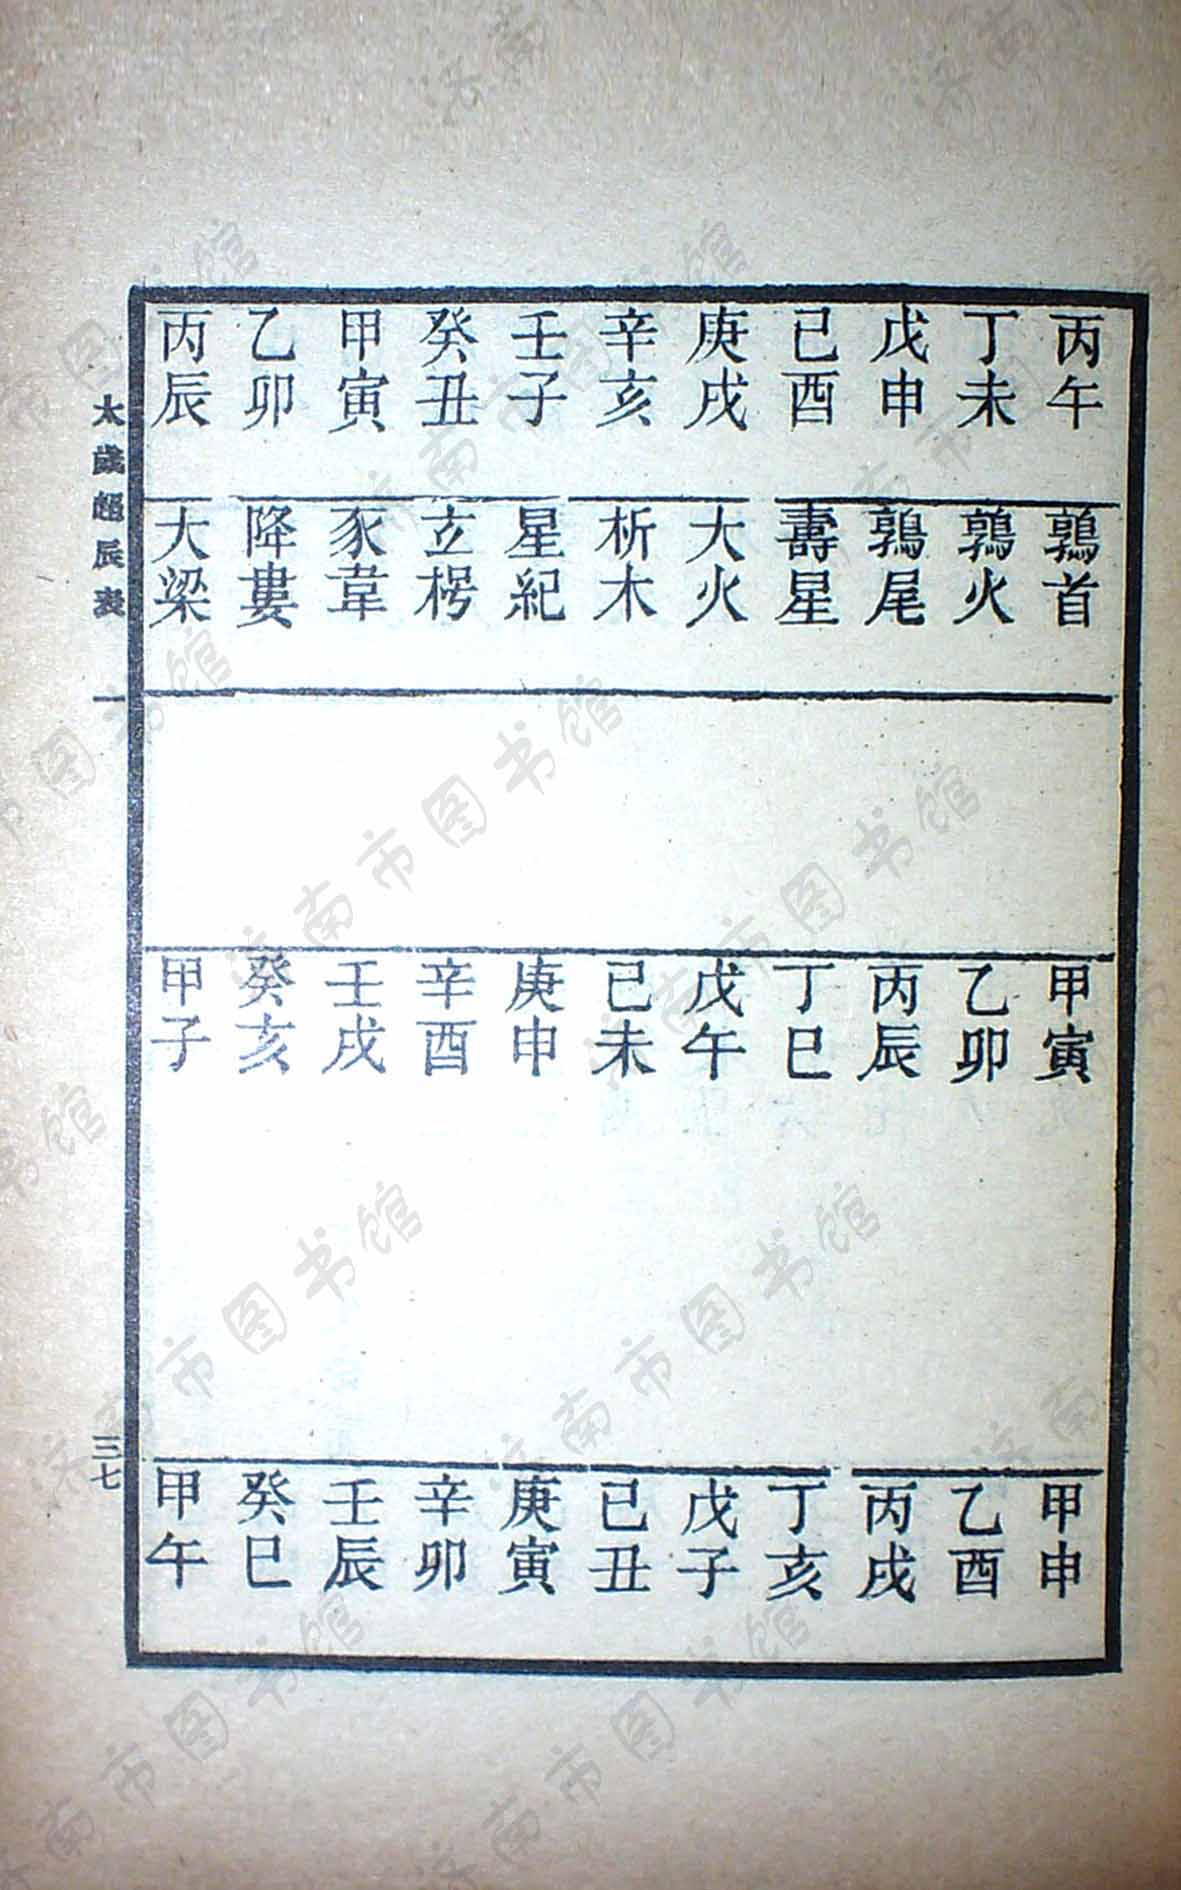 丙午 鶉首 甲寅 甲申
丁未 鶉火 乙卯 乙酉
戊申 鶉尾 丙辰 丙戌
己酉 壽星 丁巳 丁亥
庚戌 大火 戊午 戊子
辛亥 析木 己未 己丑
壬子 星紀 庚申 庚寅
癸丑 玄枵 辛酉 辛卯
甲寅 豕韋 壬戌 壬辰
乙卯 降婁 癸亥 癸巳
丙辰 大梁 甲子 甲午
太歲超辰表 一 三七
济南市图书馆